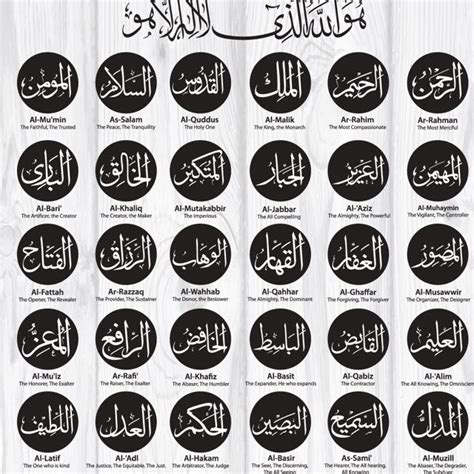 هو الله الذى لا اله الا هو
الرحمن
Ar-Rahman
The Most Merciful
الرحيم
Ar-Rahim
The Most Compassionate
الملك
Al-Malik
The King, The Monarch
القدوس
Al-Quddus
The Holy One
السلام
As-Salam
The Peace, The Tranquility
المؤمن
Al-Mu'min
The Faithful, The Trusted
المهيمن
Al-Muhaymin
The Vigilant, The Controller
العزيز
Al-'Aziz
The Almighty, The Powerful
الجبار
Al-Jabbar
The All Compelling
المتكبر
Al-Mutakabbir
The Imperious
الخالق
Al-Khaliq
The Creator, The Maker
البارئ
Al-Bari'
The Artificer, The Creator
المصور
Al-Musawwir
The Organizer, The Designer
الغفار
Al-Ghaffar
The Forgiving, The Forgiver
القهار
Al-Qahhar
The Almighty, The Dominant
الوهاب
Al-Wahhab
The Donor, The Bestower
الرزاق
Ar-Razzaq
The Provider, The Sustainer
الفتاح
Al-Fattah
The Opener, The Revealer
العليم
Al-'Alim
The All Knowing, The Omniscient
القابض
Al-Qabiz
The Contractor
الباسط
Al-Basit
The Expander, He who expands
الخافض
Al-Khafiz
The Abaser, The Humbler
الرافع
Ar-Rafi'
The Raiser, The Exalter
المعز
Al-Mu'iz
The Honorer, The Exalter
المذل
Al-Muzill
The Abaser, The Degrader,
The Subduer
السميع
As-Sami'
The Hearer, The All Hearing,
All Knowing
البصير
Al-Basir
The Seer, The Discerning,
The All Seeing
الحكم
Al-Hakam
The Arbitrator, The Judge
العدل
Al-'Adl
The Justice, The Equitable, The Just.
اللطيف
Al-Latif
The who is kind